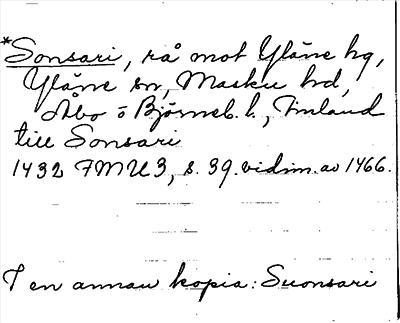 *Sonsari, rå mot Yläne hg,
Yläne sn, Masku hd,
Åbo o Björneb. l., Finland
till Sonsari
1432 FMU 3, s. 39. vidim. av 1466.
I en annan kopia: Suonsari